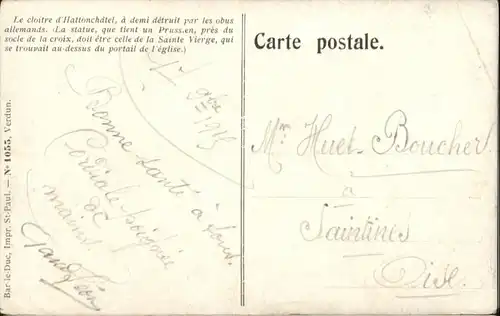 Le cloître d'Hattonchâtel, à demi détruit par les obus
allemands. (La statue, que tient un Prussien, près du
socle de la croix, doit être celle de la Sainte Vierge, qui
se trouvait au-dessus du portail de l'église.)
Bar-le-Duc, Impr. St-Paul. — No 1055. Verdun.
9bre 1915
Bonne santé à tous.
Cordiale poignée
de
mains
Carte postale.
Mr Huet-Boucher
à
Saintines
Oise